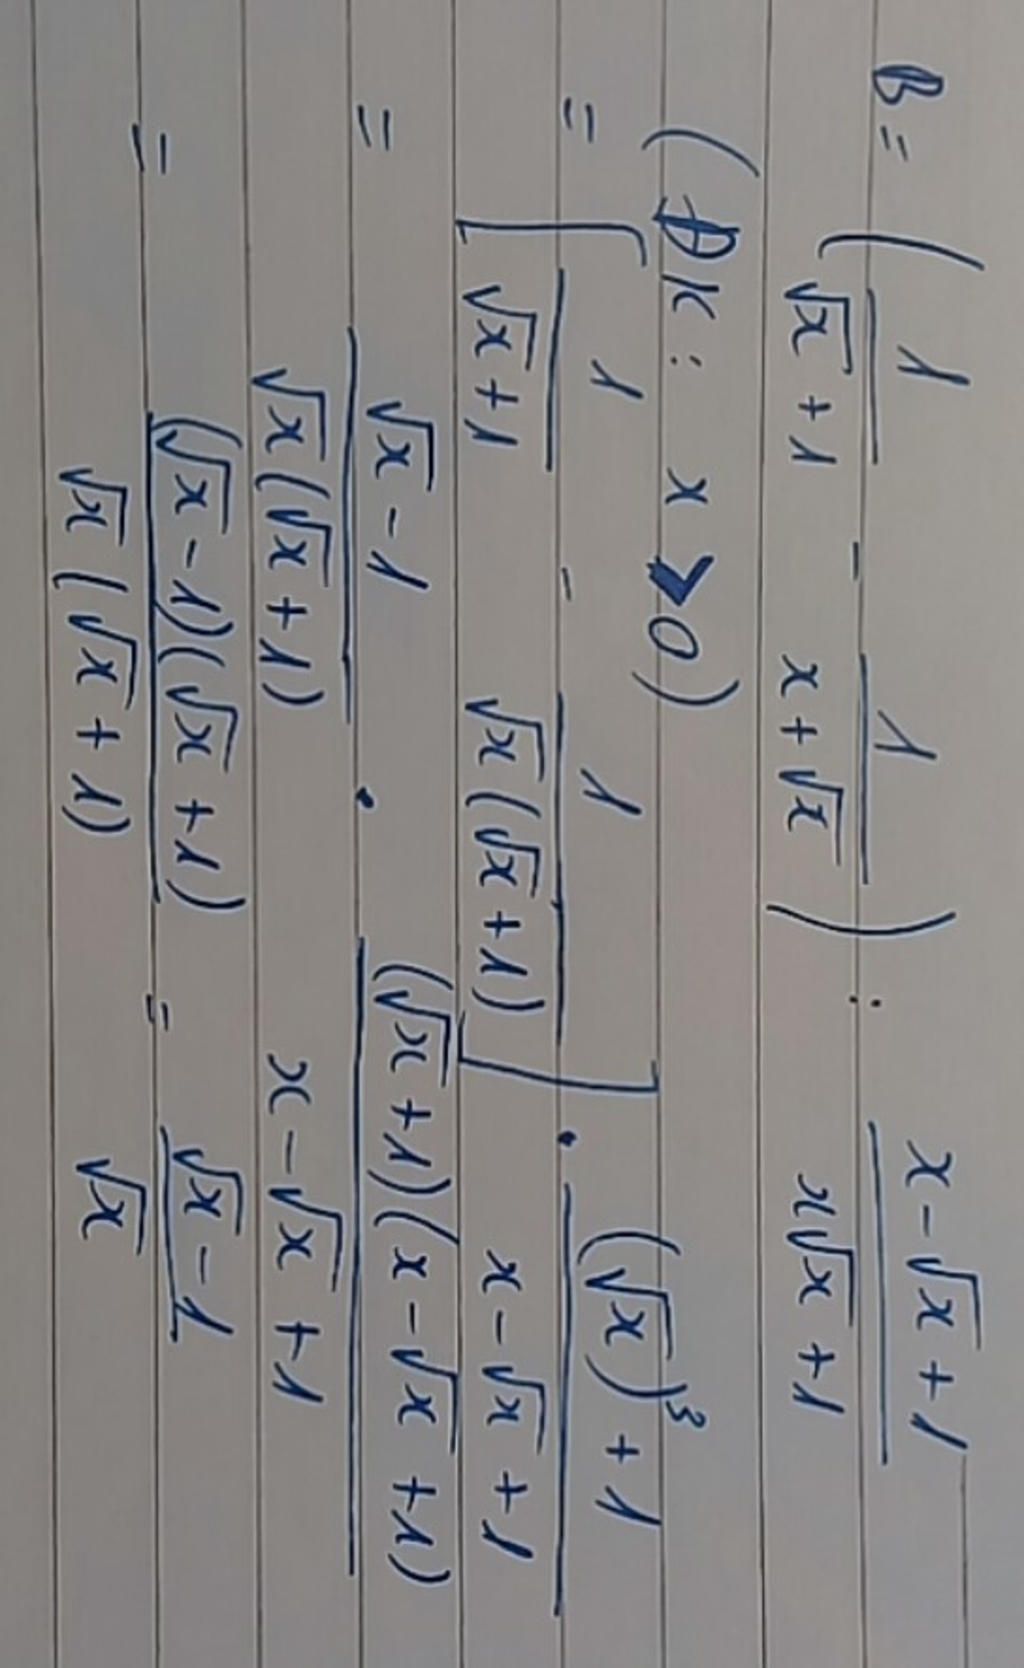 B = ( 1/(√x + 1) - 1/(x + √x) ) : (x - √x + 1)/(x√x + 1)
(ĐK : x > 0)
= [ 1/(√x + 1) - 1/(√x(√x + 1)) ] . ((√x)³ + 1)/(x - √x + 1)
= (√x - 1)/(√x(√x + 1)) . ((√x + 1)(x - √x + 1))/(x - √x + 1)
= ((√x - 1)(√x + 1))/(√x(√x + 1)) = (√x - 1)/√x